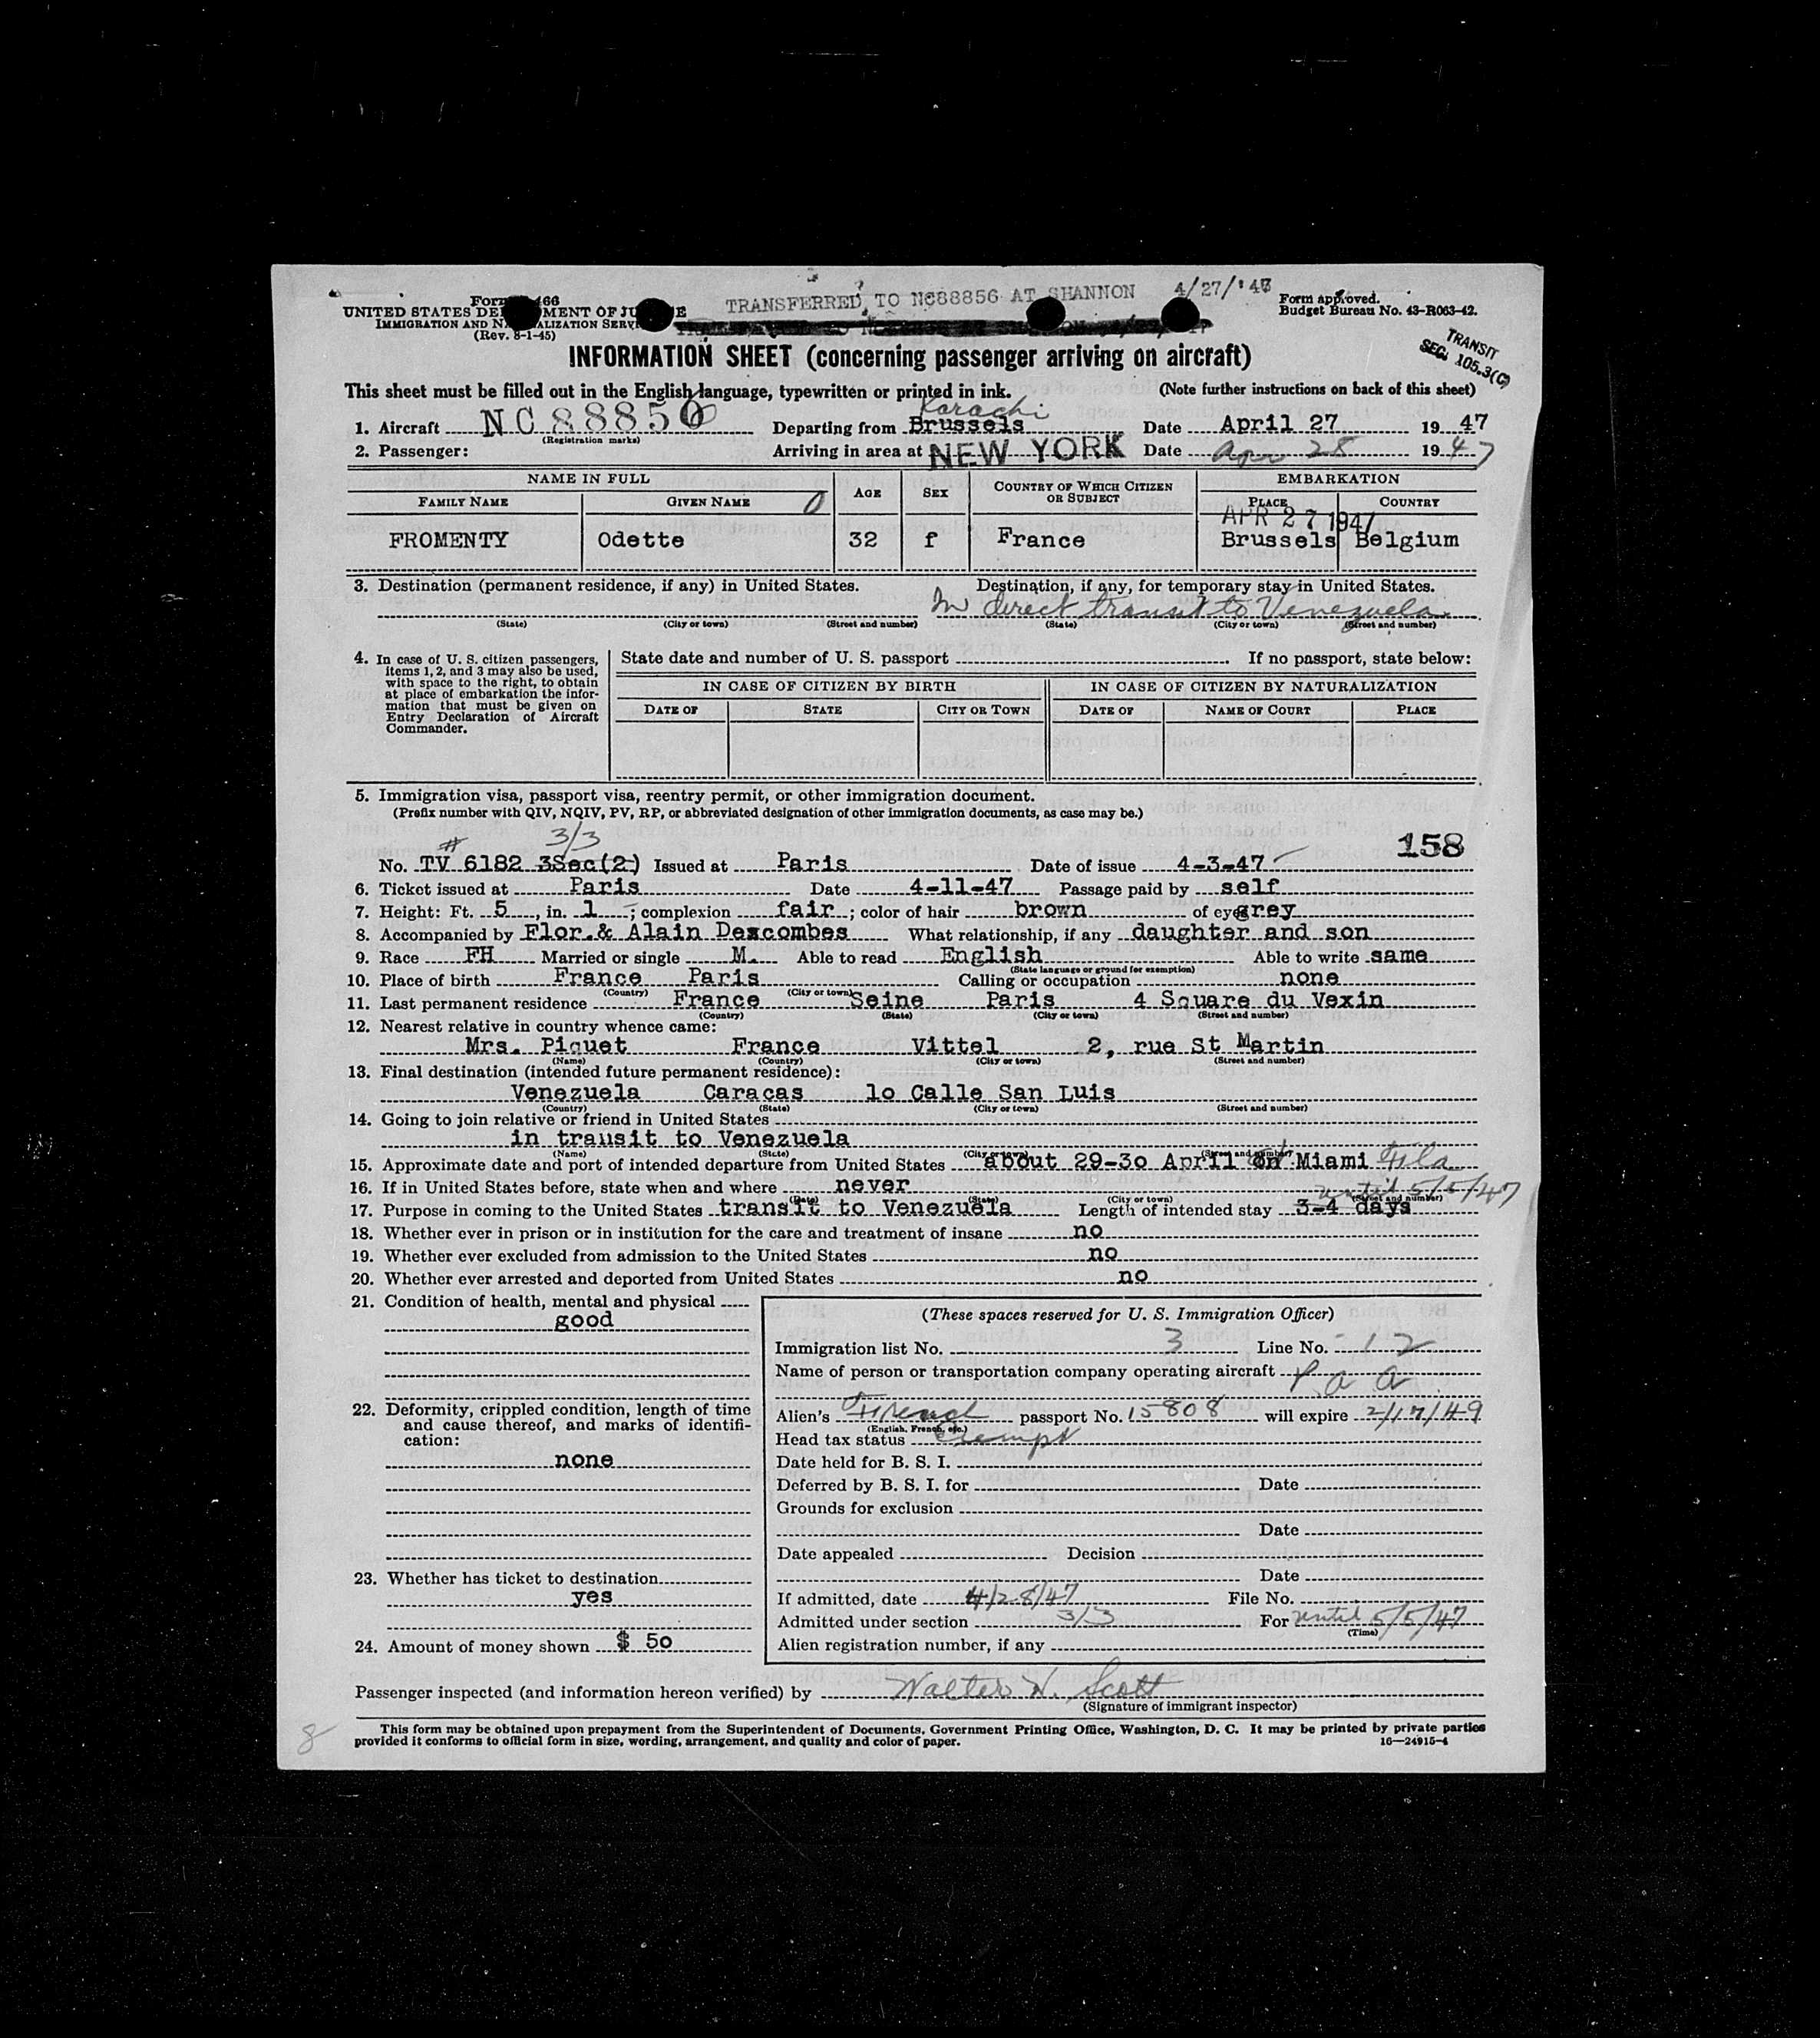 TRANSFERRED TO NC88856 AT SHANNON 4/27/'47
Form 466
UNITED STATES DE MENT OF JU E
IMMIGRATION AND N ALIZATION SERV
(Rev. 8-1-45)
Form approved.
Budget Bureau No. 43-R063-42.
TRANSIT
SEC. 105.3(C)
INFORMATION SHEET (concerning passenger arriving on aircraft)
This sheet must be filled out in the English language, typewritten or printed in ink. (Note further instructions on back of this sheet)
Karachi
1. Aircraft NC88856 Departing from Brussels Date April 27 1947
(Registration marks)
2. Passenger: Arriving in area at NEW YORK Date Apr 28 1947
NAME IN FULL AGE SEX COUNTRY OF WHICH CITIZEN OR SUBJECT EMBARKATION
FAMILY NAME GIVEN NAME 0 PLACE COUNTRY
APR 27 1947
FROMENTY Odette 32 f France Brussels Belgium
3. Destination (permanent residence, if any) in United States. Destination, if any, for temporary stay in United States.
In direct transit to Venezuela
(State) (City or town) (Street and number) (State) (City or town) (Street and number)
4. In case of U. S. citizen passengers, items 1, 2, and 3 may also be used, with space to the right, to obtain at place of embarkation the information that must be given on Entry Declaration of Aircraft Commander.
State date and number of U. S. passport If no passport, state below:
IN CASE OF CITIZEN BY BIRTH IN CASE OF CITIZEN BY NATURALIZATION
DATE OF STATE CITY OR TOWN DATE OF NAME OF COURT PLACE
5. Immigration visa, passport visa, reentry permit, or other immigration document.
(Prefix number with QIV, NQIV, PV, RP, or abbreviated designation of other immigration documents, as case may be.)
# 3/3 158
No. TV 6182 3Sec(2) Issued at Paris Date of issue 4-3-47
6. Ticket issued at Paris Date 4-11-47 Passage paid by self
7. Height: Ft. 5, in. 1; complexion fair; color of hair brown of eyes grey
8. Accompanied by Flor.& Alain Descombes What relationship, if any daughter and son
9. Race FH Married or single M. Able to read English Able to write same
(State language or ground for exemption)
10. Place of birth France Paris Calling or occupation none
(Country) (City or town)
11. Last permanent residence France Seine Paris 4 Square du Vexin
(Country) (State) (City or town) (Street and number)
12. Nearest relative in country whence came:
Mrs. Piquet France Vittel 2, rue St Martin
(Name) (Country) (City or town) (Street and number)
13. Final destination (intended future permanent residence):
Venezuela Caracas lo Calle San Luis
(Country) (State) (City or town) (Street and number)
14. Going to join relative or friend in United States
in transit to Venezuela
(Name) (State) (City or town) (Street and number)
15. Approximate date and port of intended departure from United States about 29-3o April on Miami Fla
16. If in United States before, state when and where never
(Date) (State) (City or town) (Street and number)
until 5/5/47
17. Purpose in coming to the United States transit to Venezuela Length of intended stay 3-4 days
18. Whether ever in prison or in institution for the care and treatment of insane no
19. Whether ever excluded from admission to the United States no
20. Whether ever arrested and deported from United States no
21. Condition of health, mental and physical
good
22. Deformity, crippled condition, length of time and cause thereof, and marks of identification:
none
23. Whether has ticket to destination
yes
24. Amount of money shown $ 5o
(These spaces reserved for U. S. Immigration Officer)
Immigration list No. 3 Line No. 12
Name of person or transportation company operating aircraft P. a a
Alien's French passport No. 15808 will expire 2/17/49
(English, French, etc.)
Head tax status exempt
Date held for B. S. I.
Deferred by B. S. I. for Date
Grounds for exclusion
Date
Date appealed Decision
Date
If admitted, date 4/28/47 File No.
Admitted under section 3/3 For until 5/5/47
(Time)
Alien registration number, if any
Passenger inspected (and information hereon verified) by Walter W. Scott
(Signature of immigrant inspector)
8
This form may be obtained upon prepayment from the Superintendent of Documents, Government Printing Office, Washington, D. C. It may be printed by private parties
provided it conforms to official form in size, wording, arrangement, and quality and color of paper. 16—24915-4